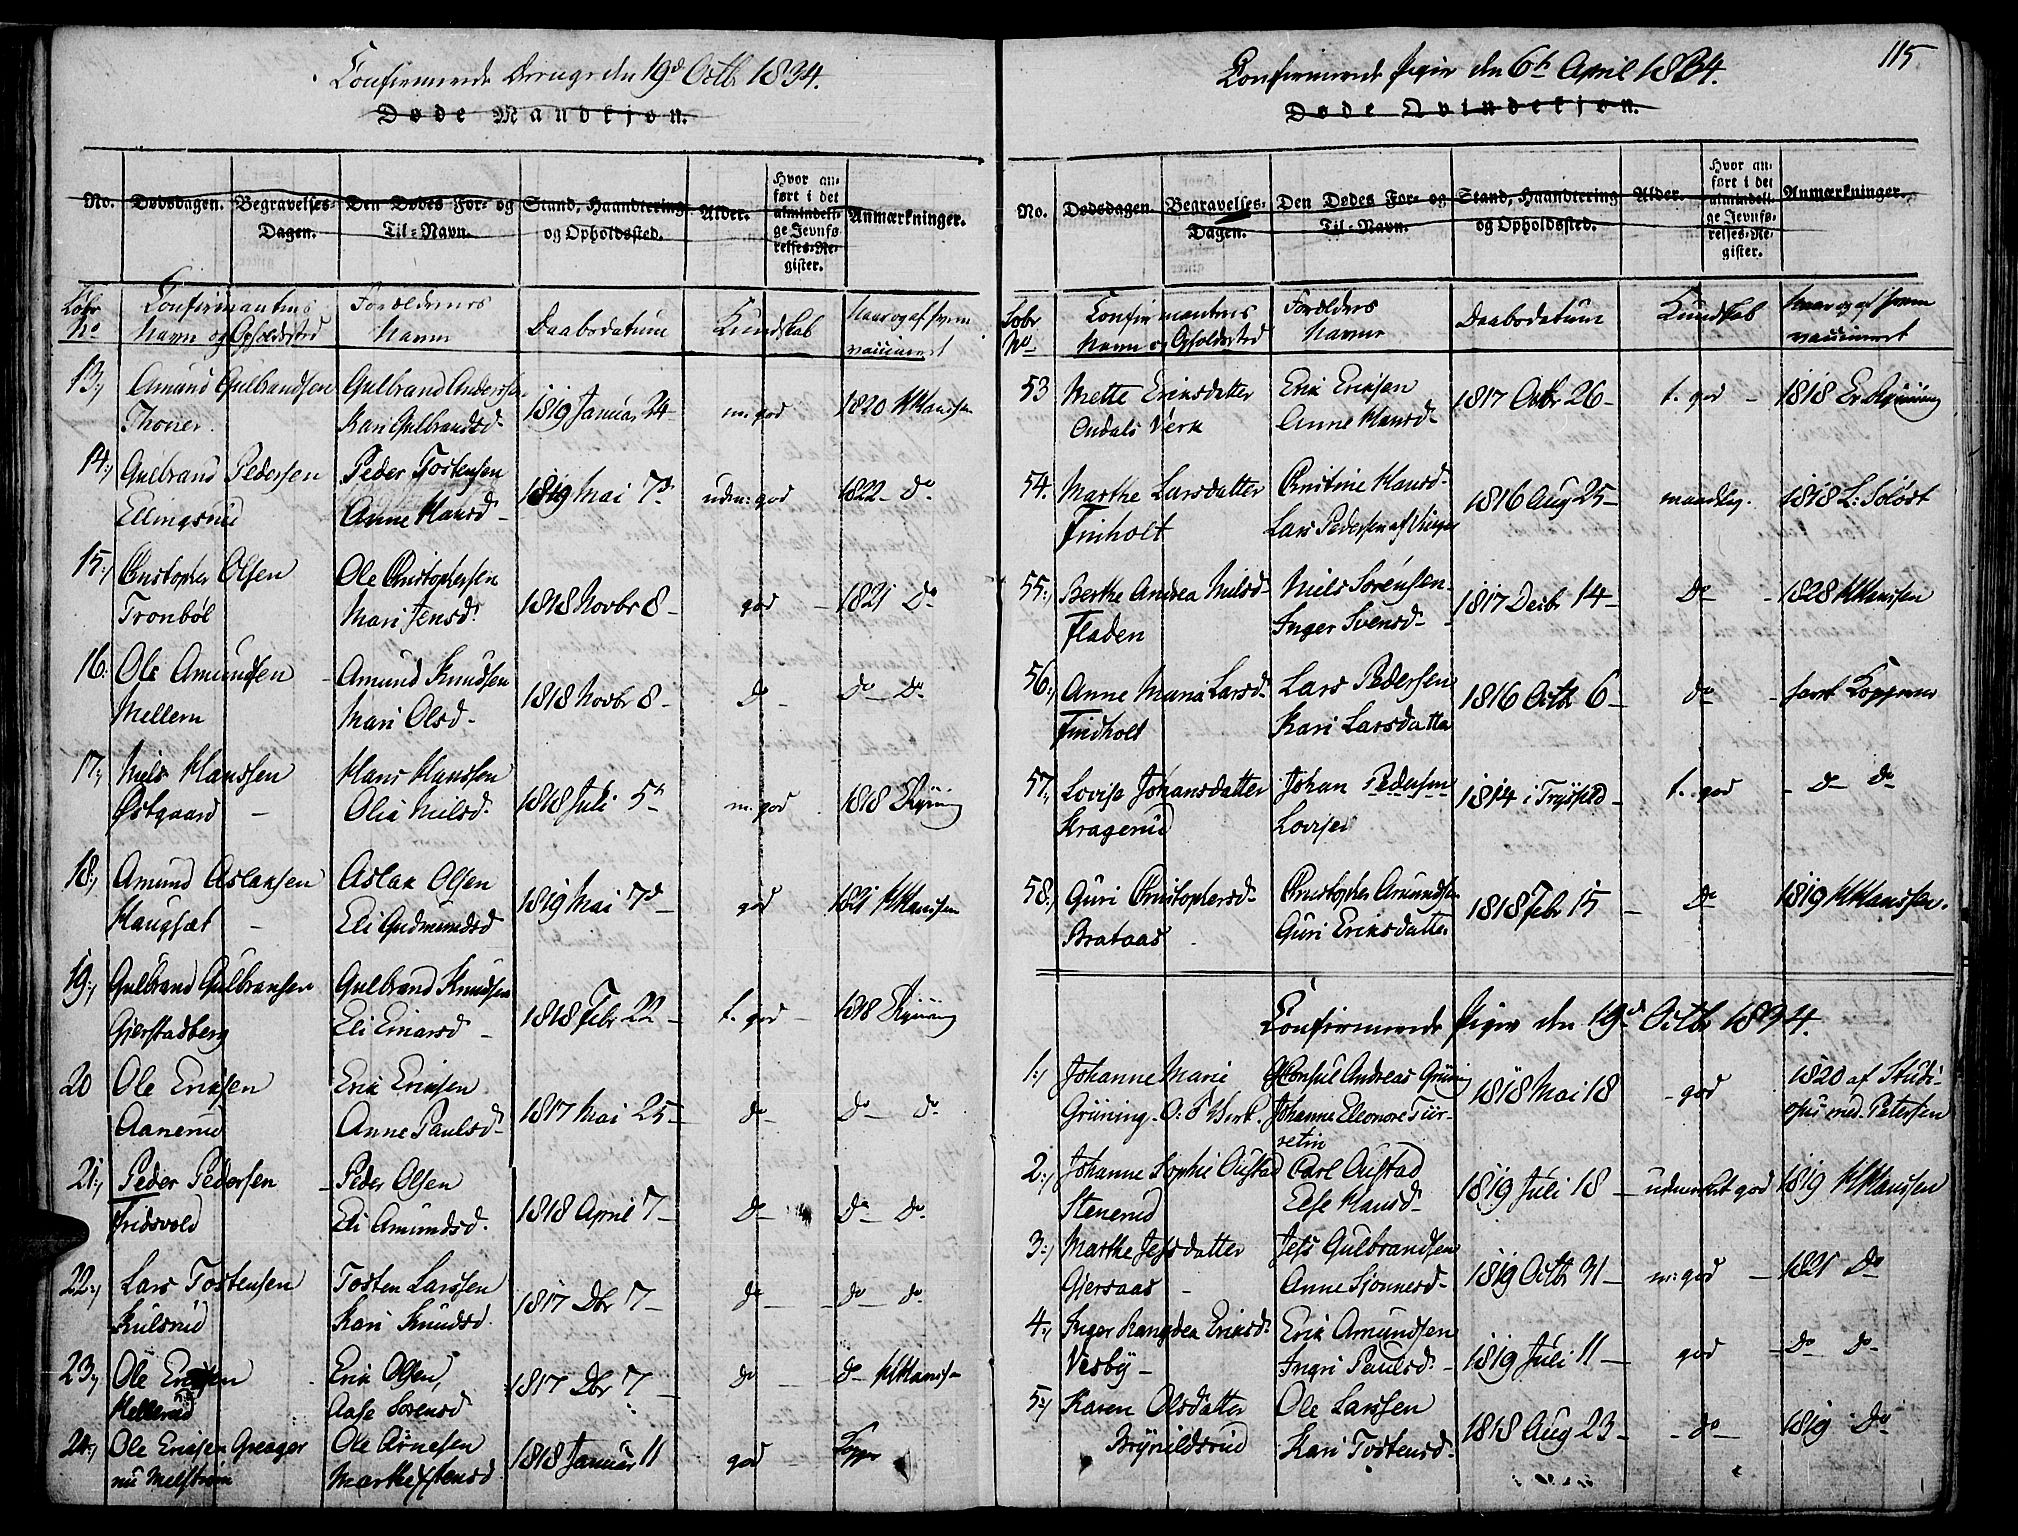 Confirmerede Drenge den 19d Octb 1834.
Døde Mandkjøn.
No. Dødsdagen. Begravelses-Dagen. Den Dødes For- og Til-Navn. Stand, Haandtering og Opholdssted. Alder. Hvor anført i det almindelige Jevnførelses-Register. Anmærkninger.
Løbe No Confirmantens Navn og Opholdsted Forældrenes Navne Daabsdatum Kundskab Naar og af hvem vaccineret
13. Amund Gulbrandsen Gulbrand Andersen 1819 Januar 24 m: god 1820 K Hanssen
Thoner. Kari Gulbrandsd.
14. Gulbrand Pedersen Peder Tostensen 1819 Mai 7d udm: god 1822 Do
Ellingsrud Anne Hansd
15. Christopher Olsen Ole Christophersen 1818 Novbr 8 god 1821 Do
Tronbøl Mari Jensd.
16. Ole Amundsen Amund Knudsen 1818 Novbr 8 Do Do Do
Mellem Mari Olsd
17. Niels Hanssen Hans Hanssen 1818 Juli 5 m: god 1818
Østgaard Olia Nielsd.
18. Amund Aslaksen Aslak Olsen 1819 Mai 7d god 1821 K Hanssen
Haugsæt Eli Gudmundsd
19. Gulbrand Gulbransen Gulbrand Knudsen 1818 Febr 22 t. god 1818
Gjerstadberg Eli Einarsd
20 Ole Eriksen Erik Eriksen 1817 Mai 25 do do do
Aanerud Anne Paulsd
21. Peder Pedersen Peder Olsen 1818 April 7 do do do
Fridsvold Eli Amundsd.
22. Lars Tostensen Tosten Larssen 1817 Dbr 7 do do do
Kulsrud Kari Knudsd.
23. Ole Erik Olsen, 1817 Dbr 7 do do K Hanssen
Hellerud Aase Sorensd
24. Ole Ericsen Greager Ole Arnesen 1818 Januar 11 god Kopper
nu Melstrøm Marthe
115
Confirmerede Piger den 6te April 1834.
Døde Qvindekjøn.
No. Dødsdagen Begravelses-Dagen. Den Dødes For- og Til-Navn. Stand, Haandtering og Opholdssted. Alder. Hvor anført i det almindelige Jevnførelses-Register. Anmærkninger.
Løbe No Confirmantens Navn og Opholdsted Forældres Navne Daabsdatum Kundskab Naar og af hvem vaccineret
53 Mette Eriksdatter Erik Eriksen 1817 Octbr 26 t. god 1818
Odals Verk Anne Hansd
54. Marthe Larsdatter Christine Hansd. 1816 Aug 25 maadelig. 1818 L: Soløst
Finholt Lars Pedersen af Vinger
55. Berthe Andrea Nielsd. Niels Sørensen 1817 Decbr 14 Do 1828 K Hanssen
Fladen Inger Svensd
56. Anne Maria Larsd. Lars Pedersen 1816 Octb 6 do havt Kopperne
Findholt Kari Larsdatter
57. Lovise Johansdatter Johan Pedersen 1814 i Trysild t. god do do
Kragerud Lovise
58. Guri Christophersd. Christopher Amundsen 1818 Febr 15 do 1819 K Hanssen.
Brataas Guri Eriksdatter
Confirmerede Piger den 19d Octbr 1834.
1. Johanne Marie Consul Andreas Grüning 1818 Mai 18 god 1820 af Studi-
Grüning. O. Verk. Johanne Elleonore Tür- osus med. Petersen
retin
2. Johanne Sophie Oustad Carl Oustad 1819 Juli 18 udmærket god 1819 K Hanssen
Stenerud Else Hansd
3. Marthe Jensdatter Jens Gulbrandsen 1819 Octb 31 m: god 1821 Do
Gjersaas Anne Sjonnesd
4. Inger Eriksd. Erik Amundsen 1819 Juli 11 god do do
Vesby Ingri Paulsd.
5. Karen Olsdatter Ole Larssen 1818 Aug 23 do 1819 Do
Brynildsrud Kari Tostensd.